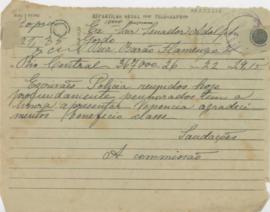 REPARTIÇÃO GERAL DOS TELEGRAPHOS
Exmo Snr Senador Adolpho
Gordo
Rua Barão Flamengo
Rio Central 367000 26 22 29,15
Escrivães Policia reunidos hoje
profundamente penhorados vem a
honra apresentar Vexencia agradeci
mentos beneficio classe
Saudações
A commissão